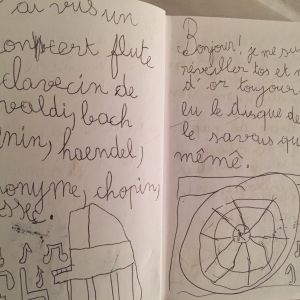 ai vus un
conçert flute
clavecin de
valdi, bach
nin, haendel,
nonyme, chopin,
sse.
Bonjour! je me su
réveiller tos et m
d'or toujour
eu le disque de
le savais qu
même.